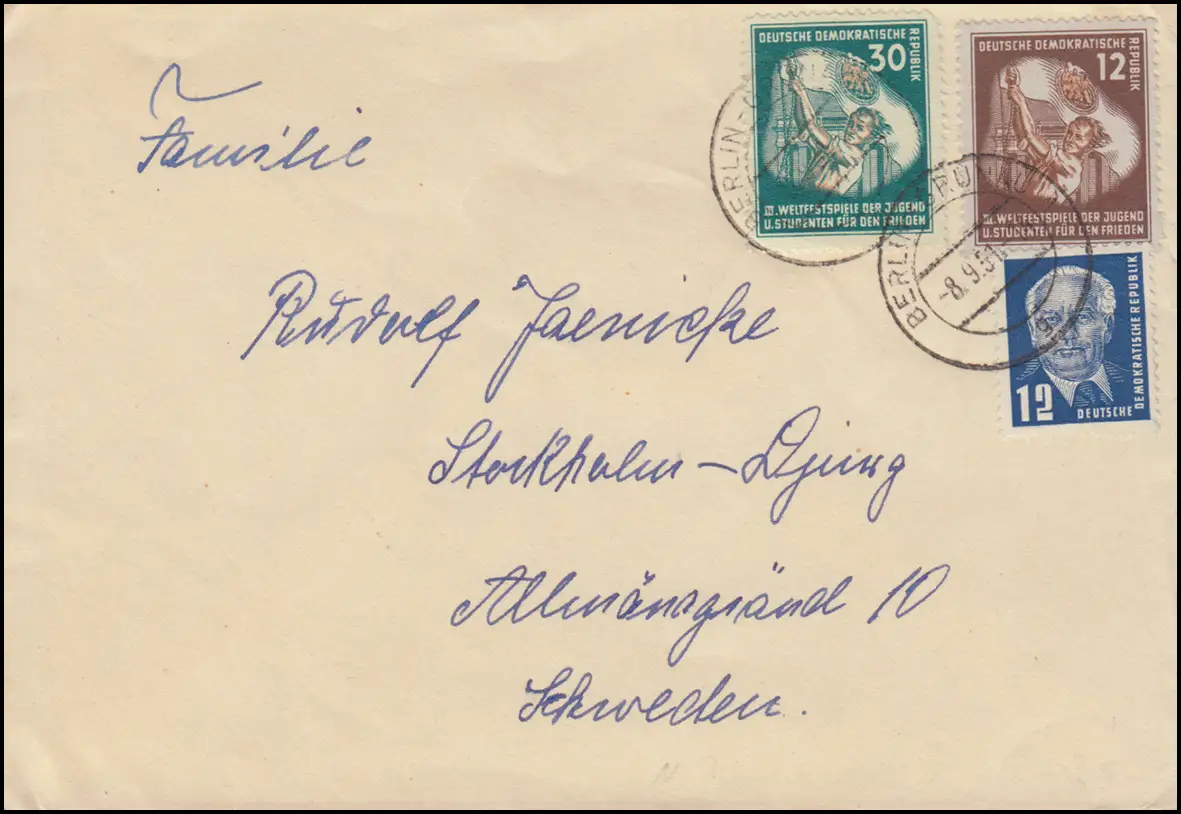 Familie
Rudolf Jaenicke
Stockholm-Djurg
Allmänsgränd 10
Schweden.
DEUTSCHE DEMOKRATISCHE
REPUBLIK
30
III. WELTFESTSPIELE DER JUGEND
U. STUDENTEN FÜR DEN FRIEDEN
DEUTSCHE DEMOKRATISCHE
REPUBLIK
12
III. WELTFESTSPIELE DER JUGEND
U. STUDENTEN FÜR DEN FRIEDEN
BERLIN-
BERLIN-GRÜNAU
-8.9.51
12
DEUTSCHE
DEMOKRATISCHE REPUBLIK